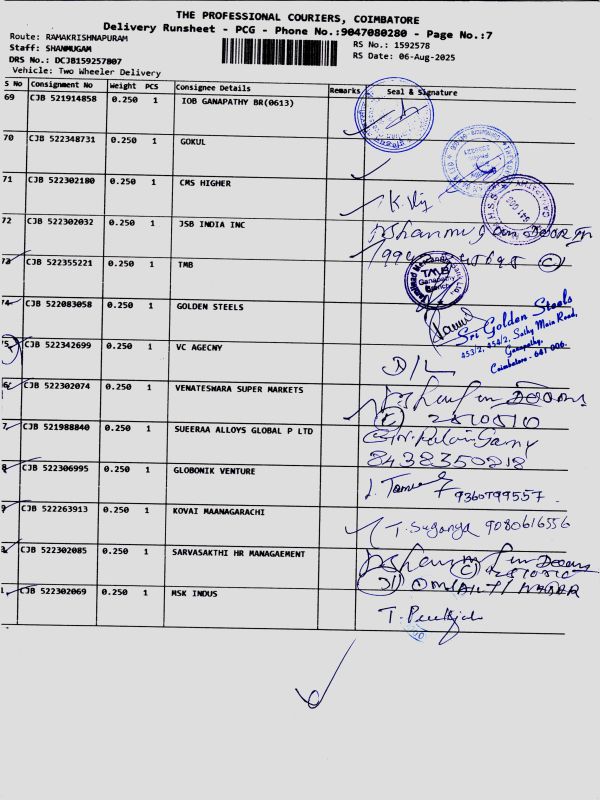 THE PROFESSIONAL COURIERS, COIMBATORE
Delivery Runsheet - PCG - Phone No.:9047080280 - Page No.:7
Route: RAMAKRISHNAPURAM
Staff: SHANMUGAM
RS No.: 1592578
DRS No.: DCJB159257807
RS Date: 06-Aug-2025
Vehicle: Two Wheeler Delivery
S No Consignment No Weight PCS Consignee Details Remarks Seal & Signature
69 CJB 521914858 0.250 1 IOB GANAPATHY BR(0613)
70 CJB 522348731 0.250 1 GOKUL
71 CJB 522302180 0.250 1 CMS HIGHER
72 CJB 522302032 0.250 1 JSB INDIA INC
73 CJB 522355221 0.250 1 TMB
TMB
Ganapathy
Branch
74 CJB 522083058 0.250 1 GOLDEN STEELS
Sri Golden Steels
453/2, 454/2, Sathy Main Road,
Ganapathy,
Coimbatore - 641 006.
75 CJB 522342699 0.250 1 VC AGECNY
D/L
6 CJB 522302074 0.250 1 VENATESHWARA SUPER MARKETS
2510510
7 CJB 521988840 0.250 1 SUEERAA ALLOYS GLOBAL P LTD
8438350218
8 CJB 522306995 0.250 1 GLOBONIK VENTURE
9360799557
9 CJB 522263913 0.250 1 KOVAI MAANAGARACHI
T. Suganya 9080616556
CJB 522302085 0.250 1 SARVASAKTHI HR MANAGAEMENT
1 CJB 522302069 0.250 1 MSK INDUS